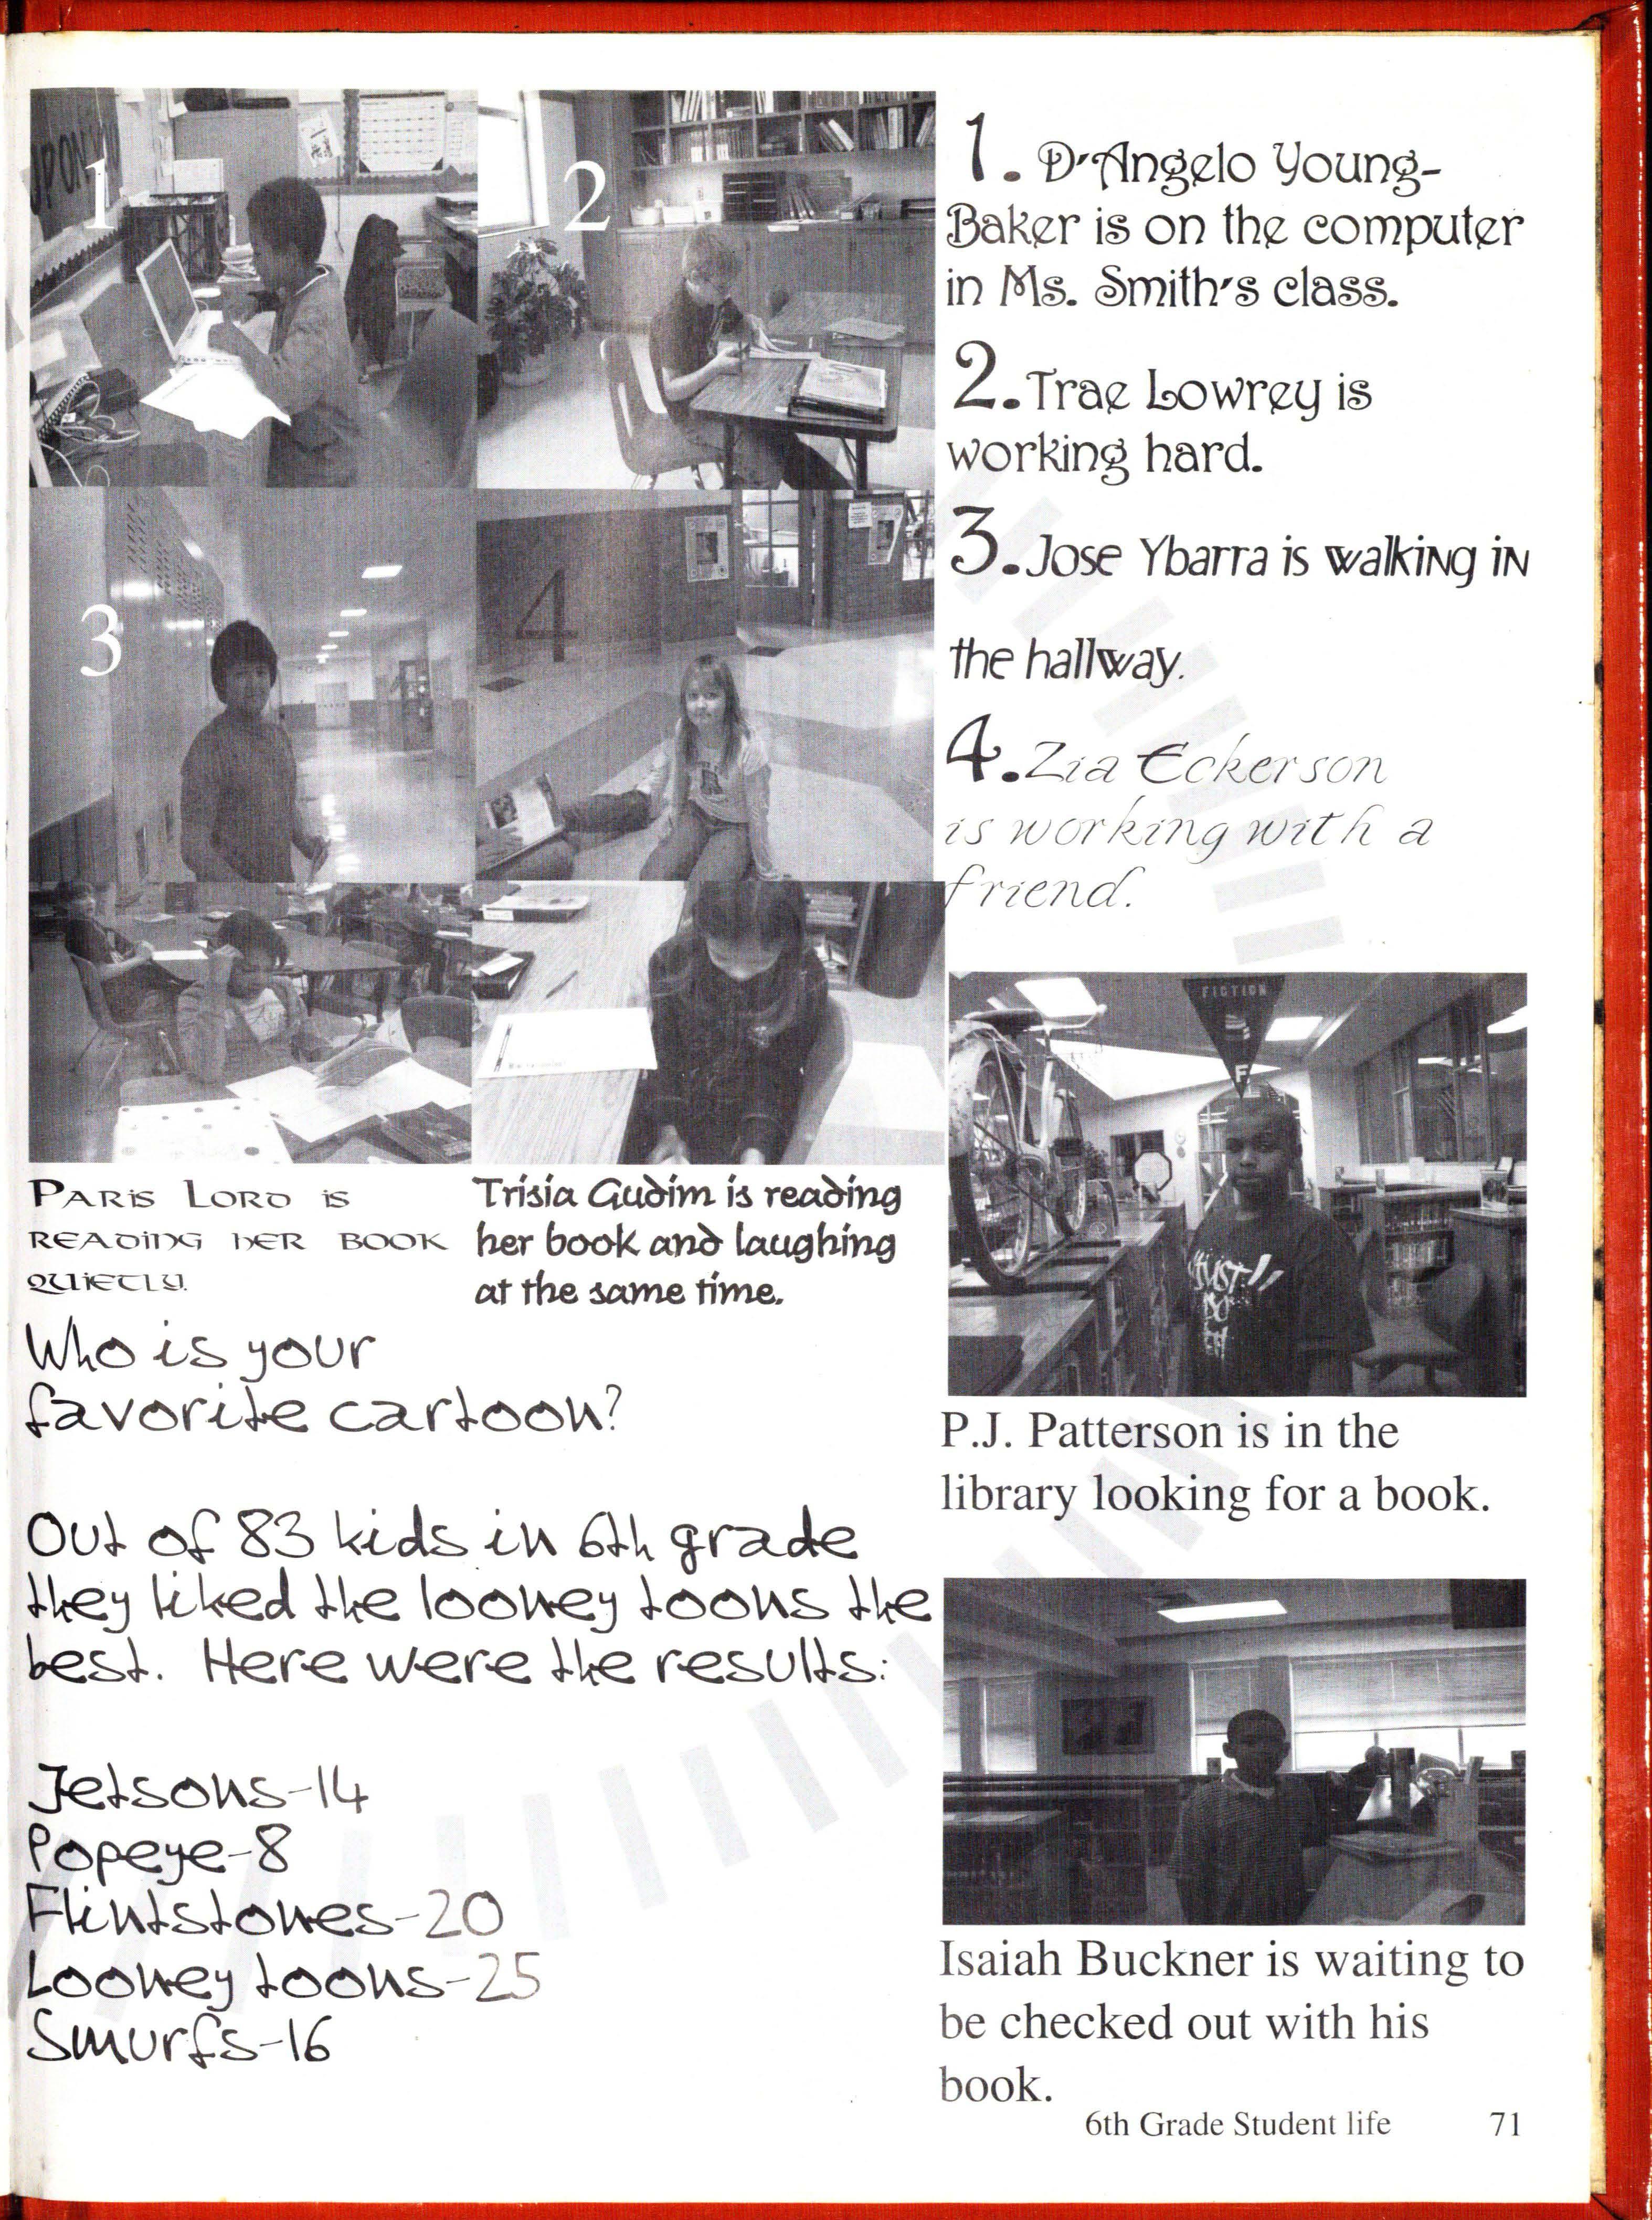 1
2
3
4
1. D'Angelo Young-
Baker is on the computer
in Ms. Smith's class.
2. Trae Lowrey is
working hard.
3. Jose Ybarra is walking in
the hallway.
4. Zia Eckerson
is working with a
friend.
Paris Lord is
reading her book
quietly.
Trisia Gudim is reading
her book and laughing
at the same time.
Who is your
favorite cartoon?
Out of 83 kids in 6th grade
they liked the looney toons the
best. Here were the results:
Jetsons-14
Popeye-8
Flintstones-20
Looney toons-25
Smurfs-16
FICTION
F
JUST
DO
IT
P.J. Patterson is in the
library looking for a book.
Isaiah Buckner is waiting to
be checked out with his
book.
6th Grade Student life 71